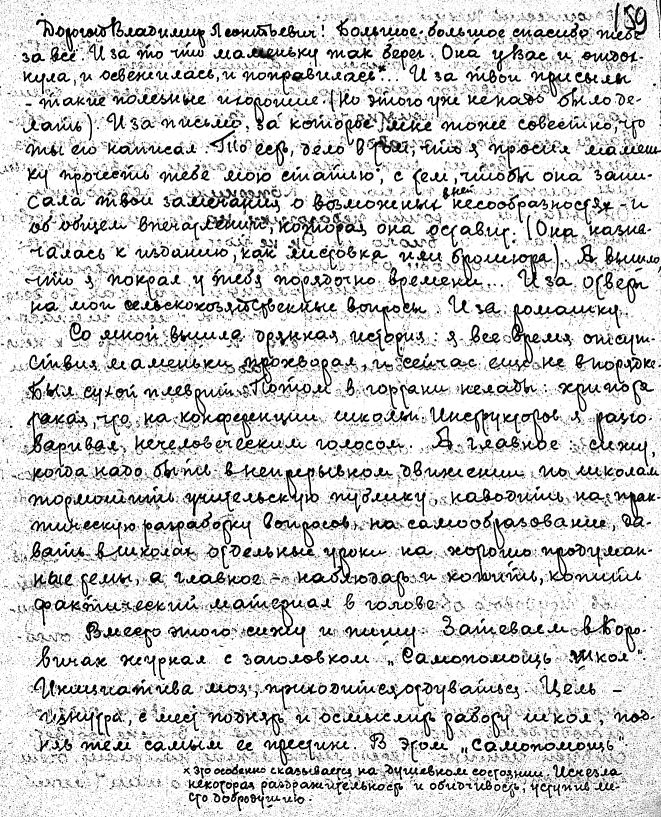 159
Дорогой Владимир Леонтьевич! Большое-большое спасибо тебе
за все. И за то что маменьку так берег. Она у вас и отдох-
нула, и освежилась, и поправилась×... И за твои присылы
- такие полезные и хорошие. (Но этого уже не надо было де-
лать). И за письмо, за которое мне тоже совестно, что
ты его написал. То есть, дело в том, что я просил мамень-
ку прочесть тебе мою статью, с тем, чтобы она запи-
сала твои замечания о возможных в ней несообразностях - и
об общем впечатлении, которая она оставит. (Она назна-
чалась к изданию, как листовка или брошюра). А вышло,
что я покрал у тебя порядочно времени... И за ответы
на мои сельскохозяйственные вопросы. И за ромашку.
Со мной вышла дрянная история: я все время отсут-
ствия маменьки прохворал, и сейчас еще не в порядке.
Был сухой плеврит. Потом в гортани нелады: хрипота
такая, что на конференции школьн. инструкторов я разго-
варивал нечеловеческим голосом. А главное: сижу,
когда надо быть в непрерывном движении по школам
тормошить учительскую публику, наводить на прак-
тическую разработку вопросов, на самообразование, да-
вать в школах отдельные уроки на хорошо продуман-
ные темы, а главное - наблюдать и копить, копить
фактический материал в голове.
Вместо этого сижу и пишу. Затеваем в Боро-
вичах журнал с заголовком „Самопомощь школ".
Инициатива моя, приходится отдуваться. Цель -
изнутра, с мест поднять и осмыслить работу школ, под-
нять тем самым ее престиж. В этом „Самопомощь"
× это особенно сказывается на душевном состоянии. Исчезла
некоторая раздражительность и обидчивость, уступив ме-
сто добродушию.